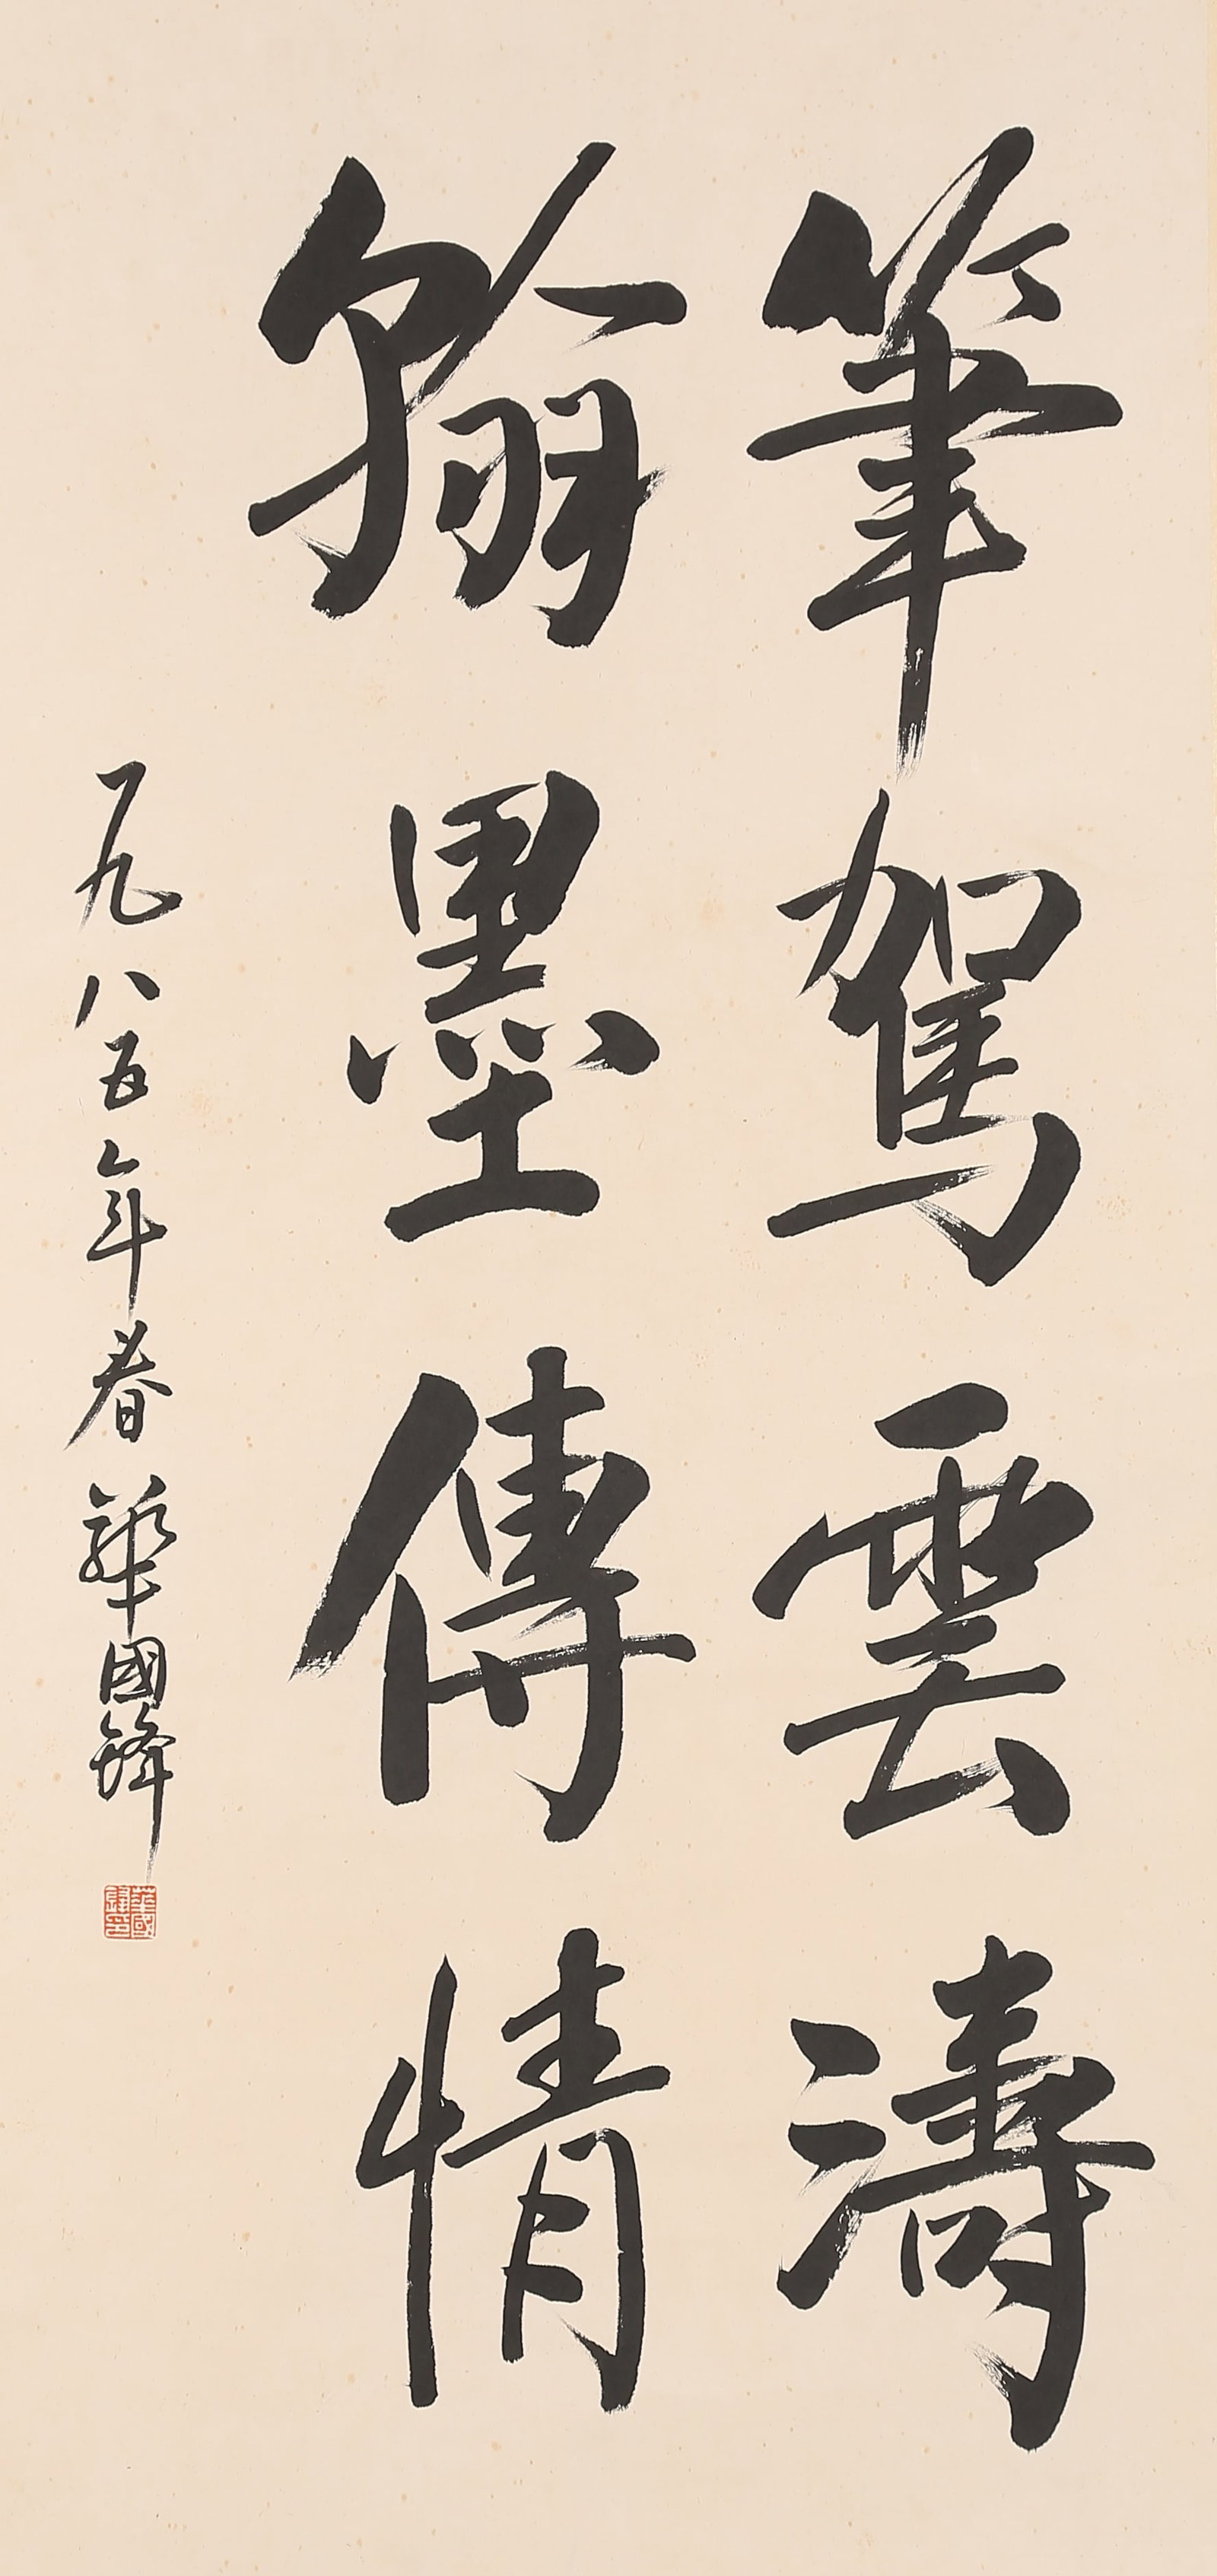 筆駕雲濤
翰墨傳情
一九八五年春 華國鋒
華國鋒印